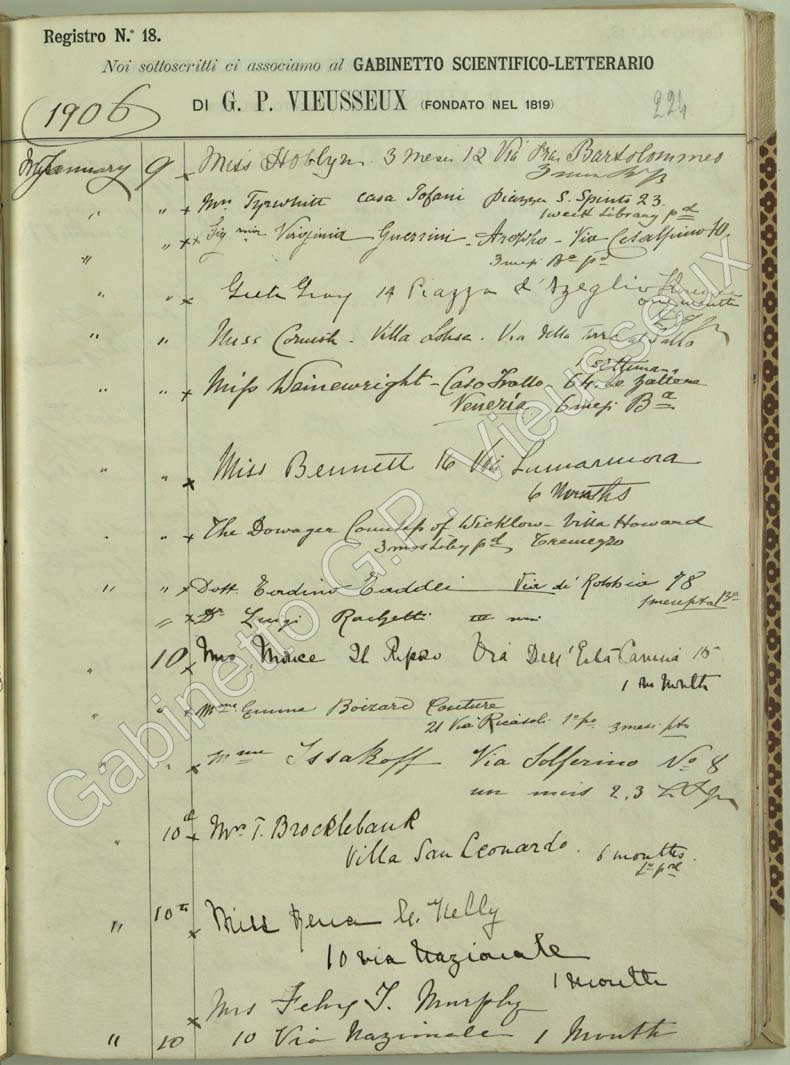 Registro N.° 18.
Noi sottoscritti ci associamo al GABINETTO SCIENTIFICO-LETTERARIO
DI G. P. VIEUSSEUX (FONDATO NEL 1819)
224
1906
January 9 Miss Hoblyn 3 mesi 12 Via Fra Bartolommeo
3 mesi
" " Mrs Tyrwhitt casa Tofani piazza S. Spirito 23.
1 week Library pd
" " Virginia Guerrini - Via Cesalpino 10
3 mesi Ba pd
" " Greta Gray 14 Piazza d'Azeglio Florence
one month
" " Miss Cornish - Villa - Via della Torre al Gallo
" " Miss Wainewright - 64 le Zattere
Venezia 6 mesi Ba
" " Miss Bennett 16 Via Lamarmora
6 Months
" " The Dowager Countess of Wicklow - Villa Howard
3 mos pd
" " Dott. Taddei Via de' Robbia 78
1 mese
" " Dr Luigi Rachetti III
" 10 Mrs Il Riposo Via Dell'Erta Canina 15
1 Month
" " Mme Emma Boizard Couture
21 Via Ricasoli 1° po 3 mesi pto
" " Mme Issakoff Via Solferino No 8
un mois 2,3
" 10 Mrs T. Brocklebank
Villa San Leonardo. 6 months.
" 10th Miss G. Kelly
10 via Nazionale
1 month
Mrs T. Murphy
" 10 10 Via Nazionale 1 Month
Gabinetto G.P. Vieusseux